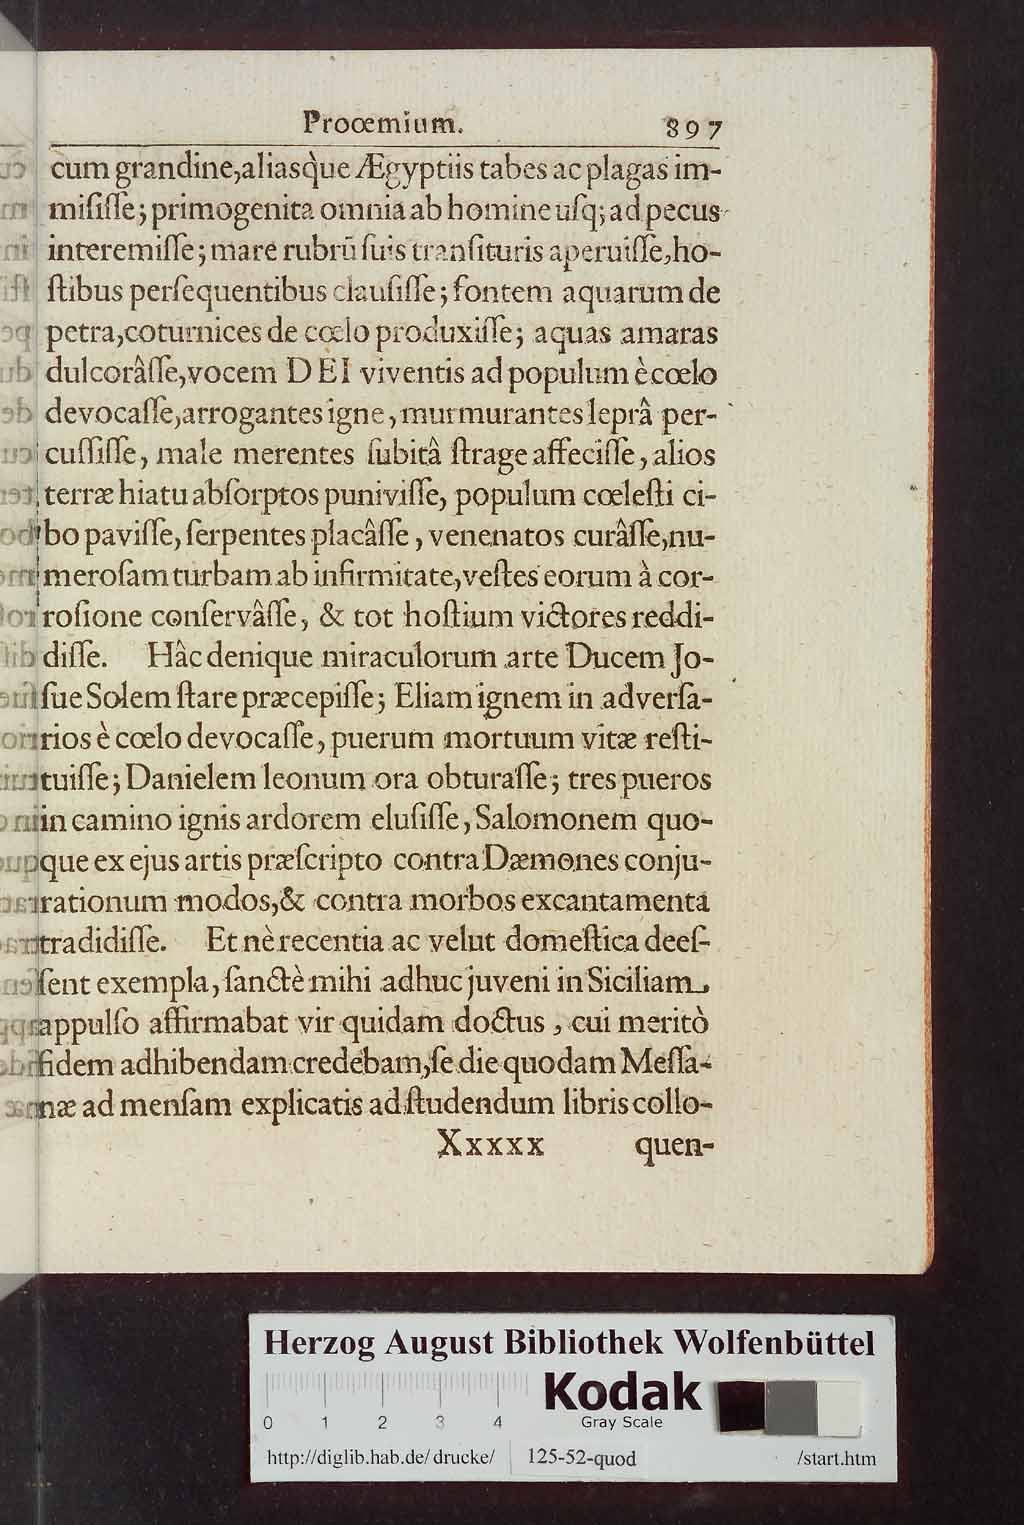 Prooemium. 897
cum grandine, aliasq̀ue Ægyptiis tabes ac plagas im-
misisſe; primogenita omnia ab homine uſq; ad pecus
interemiſſe; mare rubrū ſuis tranſituris aperuiſſe, ho-
ſtibus perſequentibus clauſiſſe; fontem aquarum de
petra, coturnices de cœlo produxiſſe; aquas amaras
dulcorâſſe, vocem DEI viventis ad populum è cœlo
devocaſſe, arrogantes igne, murmurantes leprâ per-
cuſſiſſe, male merentes ſubitâ ſtrage affeciſſe, alios
terræ hiatu abſorptos puniviſſe, populum cœleſti ci-
bo paviſſe, ſerpentes placâſſe, venenatos curâſſe, nu-
meroſam turbam ab infirmitate, veſtes eorum à cor-
roſione conſervâſſe, & tot hoſtium victores reddi-
diſſe. Hâc denique miraculorum arte Ducem Jo-
ſue Solem ſtare præcepiſſe; Eliam ignem in adverſa-
rios è cœlo devocaſſe, puerum mortuum vitæ reſti-
tuiſſe; Danielem leonum ora obturaſſe; tres pueros
in camino ignis ardorem eluſiſſe, Salomonem quo-
que ex ejus artis præſcripto contra Dæmones conju-
rationum modos, & contra morbos excantamenta
tradidiſſe. Et nè recentia ac velut domeſtica deeſ-
ſent exempla, ſanctè mihi adhuc juveni in Siciliam
appulſo affirmabat vir quidam doctus, cui meritò
fidem adhibendam credebam, ſe die quodam Meſſa-
næ ad menſam explicatis ad ſtudendum libris collo-
Xxxxx quen-
Herzog August Bibliothek Wolfenbüttel
Kodak
0 1 2 3 4 Gray Scale
http://diglib.hab.de/drucke/ 125-52-quod /start.htm